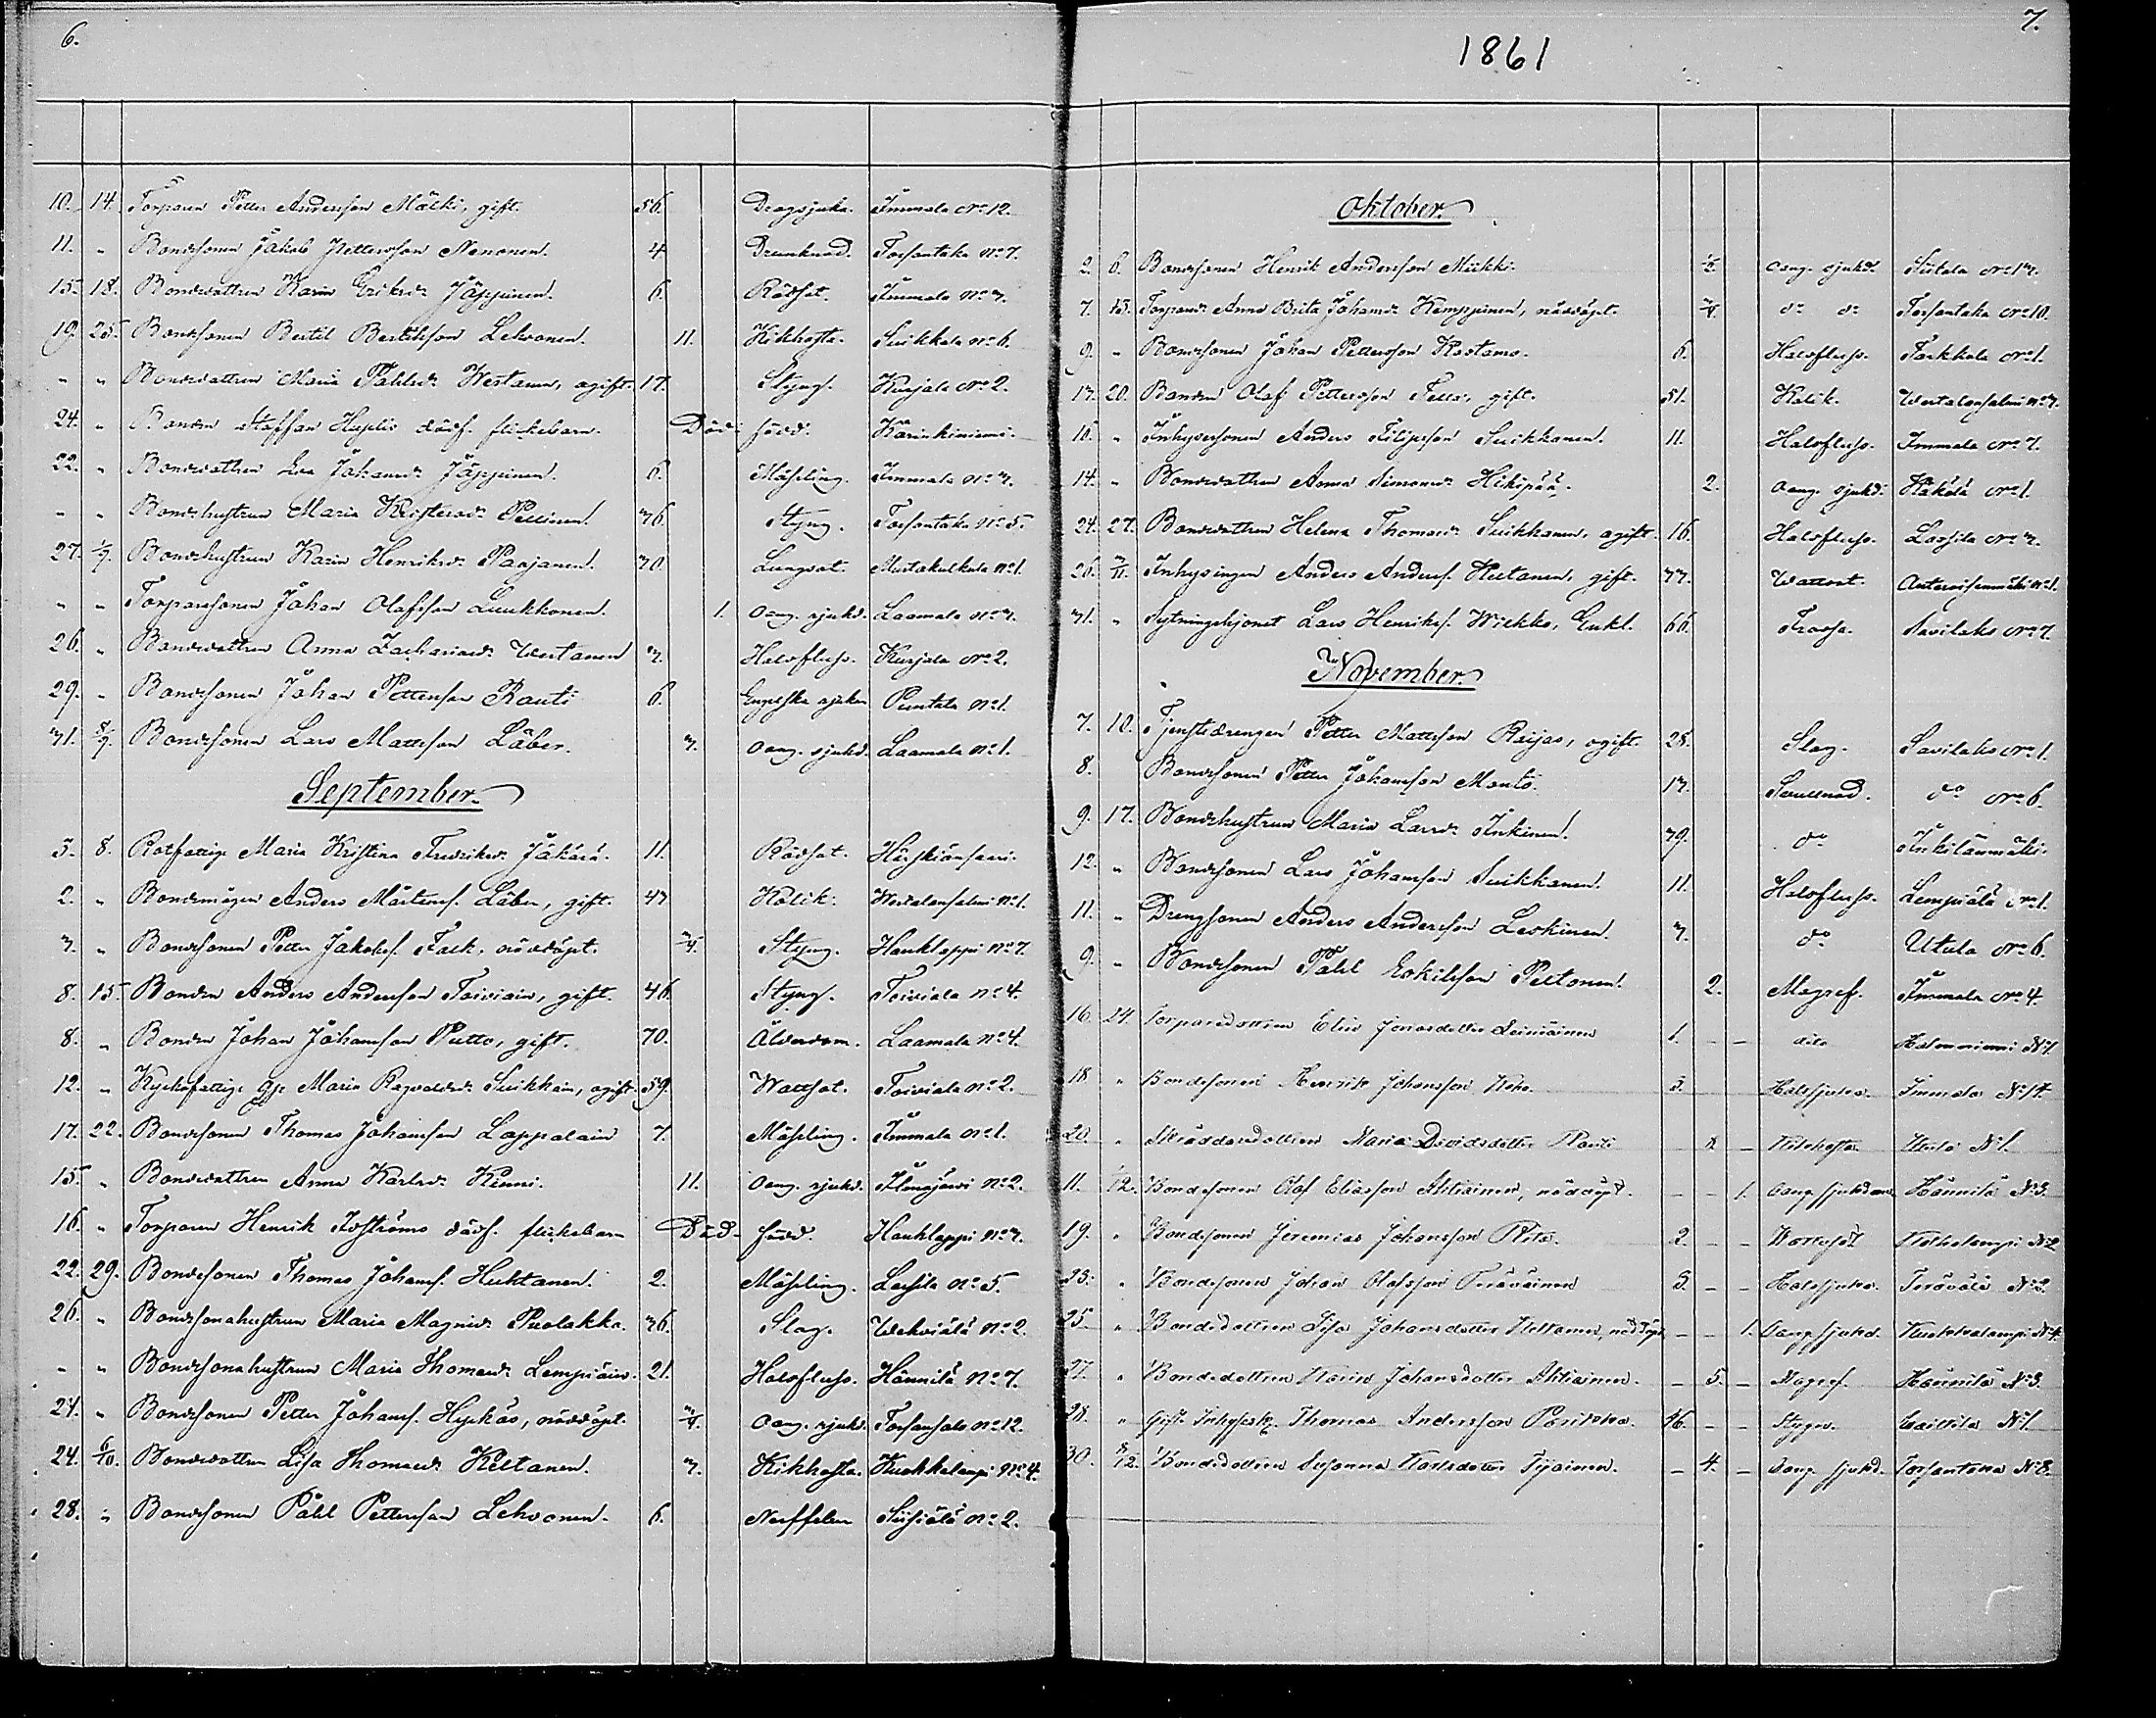 6.
10. 14. Torparen Petter Andersson Mäcki, gift. 56. Dragsjuka. Immala No 12.
11. " Bondesonen Jakob Pettersson Nenonen. 4 Drunknad. Torsantaka No 7.
15. 18. Bondedottren Karin Eriksdr Jäppinen. 6. Rödsot. Immala No 3.
19. 25. Bondesonen Bertil Bertilsson Lehvonen. 11. Kikhosta. Suikkala No 6.
" " Bondedottren Maria Påhlsdr Westanen, ogift. 17. Styng. Kurjala No 2.
24. " Bonden Staffan dödf. flickebarn. Död född. Kärinkiniemi.
22. " Bondedottren Eva Johansdr Jäppinen. 6. Mäsling. Immala No 3.
" " Bondehustrun Maria Pellinen. 36. Styng. Torsantaka No 5.
27. 1/9. Bondehustrun Karin Henriksdr Paajanen. 30. Lungsot. Mustakulkula No 1.
" " Torparesonen Johan Olafsson Luukkonen. 1. Oang. sjukd. Laamala No 3.
26. " Bondedottren Anna Zachariasdr Westanen 3. Halsfluss. Kurjala No 2.
29. " Bondesonen Johan Pettersson Rauti 6. Engelska sjukan Puntala No 1.
31. 8/9. Bondesonen Lars Mattsson Läber. 3. Oang. sjukd. Laamala No 1.
September.
5. 8. Rotfattige Maria Kristina Fredriksdr Jäkärä. 11. Rödsot. Hirskiänsaari.
2. " Bondemågen Anders Mårtenss. Läber, gift. 43 Kolik. No 1.
3. " Bondesonen Petter Jakobss. Falk, nöddöpt. 3/4. Styng. Hauklappi No 7.
8. 15. Bonden Anders Andersson Toiviain, gift. 46. Styng. Toiviala No 4.
8. " Bonden Johan Johansson Putto, gift. 70. Ålderdom. Laamala No 4.
12. " Kyrkofattige Maria Suikkain, ogift. 59. Wattsot. Toiviala No 2.
17. 22. Bondesonen Thomas Johansson Lappalain 7. Mäsling. Immala No 1.
15. " Bondedottren Anna Karlsdr Kinni. 11. Oang. sjukd. No 2.
16. " Torparen Henrik dödf. flickebarn Död född. Hauklappi No 3.
22. 29. Bondesonen Thomas Johanss. Huhtanen. 2. Mäsling. Lassila No 5.
26. " Bondsonahustrun Maria Magnidr Puolakka. 36. Slag. No 2.
" " Bondsonahustrun Maria Thomasdr Lempiäin. 21. Halsfluss. Hännilä No 7.
24. " Bondesonen Petter Johanss. Hyrkäs, nöddöpt. 3/4. Oang. sjukd. Torsansalo No 12.
24. 6/10. Bondedottren Lisa Thomasdr Keltanen. 3. Kikhosta. Kuokkalampi No 4.
28. " Bondesonen Påhl Pettersson Lehvonen. 6. Nerffeber No 2.
7.
1861
Oktober.
2. 6. Bondesonen Henrik Andersson Miikki. 1/2. oang. sjukd. No 13.
7. 13. Torpared. Anna Brita Johansdr Kemppinen, nöddöpt. 3/4 do do Torsantaka No 10.
9. " Bondesonen Johan Pettersson Rastama. 6. Halsfluss. No 1.
13. 20. Bonden Olof Pettersson gift. 51. Kolik. No 3.
10. " Inhysesonen Anders Filipsson Suikkanen. 11. Halsfluss. Immala No 7.
14. " Bondedottren Anna Simonsdr Hikipää. 2. oang. sjukd. Käkelä No 1.
24. 27. Bondedottren Helena Thomasdr Suikkanen, ogift. 16. Halsfluss. Lassila No 3.
26. 3/11. Inhysingen Anders Anderss. gift. 33. Wattsot. No 1.
31. " Sytningshjonet Lars Henrikss. Wickko, Enkl. 66. Frossa. Savilaks No 7.
November.
7. 10. Tjenstedrengen Petter Mattsson Raijas, ogift. 28. Slag. Savilaks No 1.
8. Bondesonen Petter Johansson Monto. 13. Svullnad. do No 6.
9. 17. Bondehustrun Maria Larsdr Inkinen. 39. do Inkilänmäki.
12. " Bondesonen Lars Johansson Suikkanen. 11. Halsfluss. Lempiälä No 1.
11. " Drengsonen Anders Andersson Leskinen. 3. do Utula No 6.
9. " Bondesonen Påhl Eskilsson Peltonen. 2. Magref. Immala No 4
16. 24. Torparedottren Elin Jonasdotter Leiniäinen 1. dito No 1.
18 " Bondesonen Henrik Johansson 5. Halssjuka. Immala No 14.
20. " Maria Davidsdotter Rauti 8 Kikhosta No 1.
11. 1/12. Bondesonen Olof Eliasson Ahtiainen, nöddöpt. 1. Oang. sjukdom Hännilä No 3.
19. " Bondesonen Jeremias Johansson 2. Wattusot No 2
23. " Bondesonen Johan Olofsson Teräväinen 3. Halssjuka. Terävälä No 2.
25 " Bondedottren Lisa Johansdotter nöddöpt 1. Oang. sjukd. Kuokkalampi No 4.
27. " Bondedottren Karin Johansdotter Ahtiainen. 5. Magref. Hännilä No 3.
28. " Gift Thomas Andersson 56. Styng. No 1
30. 8/12. Bondedottren Susanna Karlsdotter Tijainen. 4. Oang. sjukd. Torsantaka No 8.